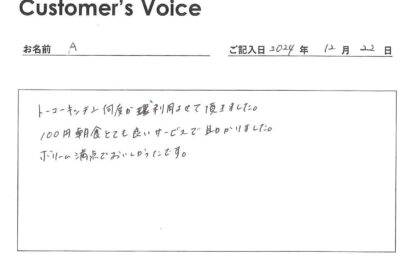 Customer's Voice
お名前 A ご記入日 2024 年 12 月 22 日
トーコーキッチン何度か利用させて頂きました。
100円朝食とても良いサービスで助かりました。
ボリューム満点でおいしかったです。